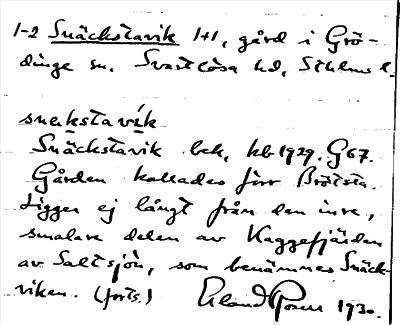 1-2 Snäckstavik 1+1, gård i Grö-
dinge sn. Svartlösa hd, Sthlms l.
snekstavik
Snäckstavik bck, hb 1929. G67.
Gården kallades förr Brötsta.
Ligger ej långt från den inre,
smalare delen av Kaggefjärden
av Saltsjön, som benämnes Snäck-
viken. (forts.) Erland Rosen 1930.